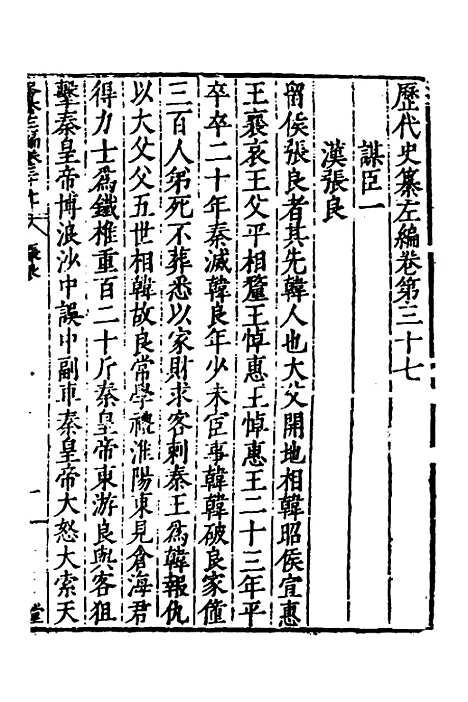 歷代史纂左編卷第三十七
謀臣一
漢張良
留侯張良者其先韓人也大父開地相韓昭侯宣惠
王襄哀王父平相釐王悼惠王悼惠王二十三年平
卒卒二十年秦滅韓良年少未臣事韓韓破良家僮
三百人弟死不葬悉以家財求客刺秦王爲韓報仇
以大父父五世相韓故良常學禮淮陽東見倉海君
得力士爲鐵椎重百二十斤秦皇帝東游良與客狙
擊秦皇帝博浪沙中誤中副車秦皇帝大怒大索天